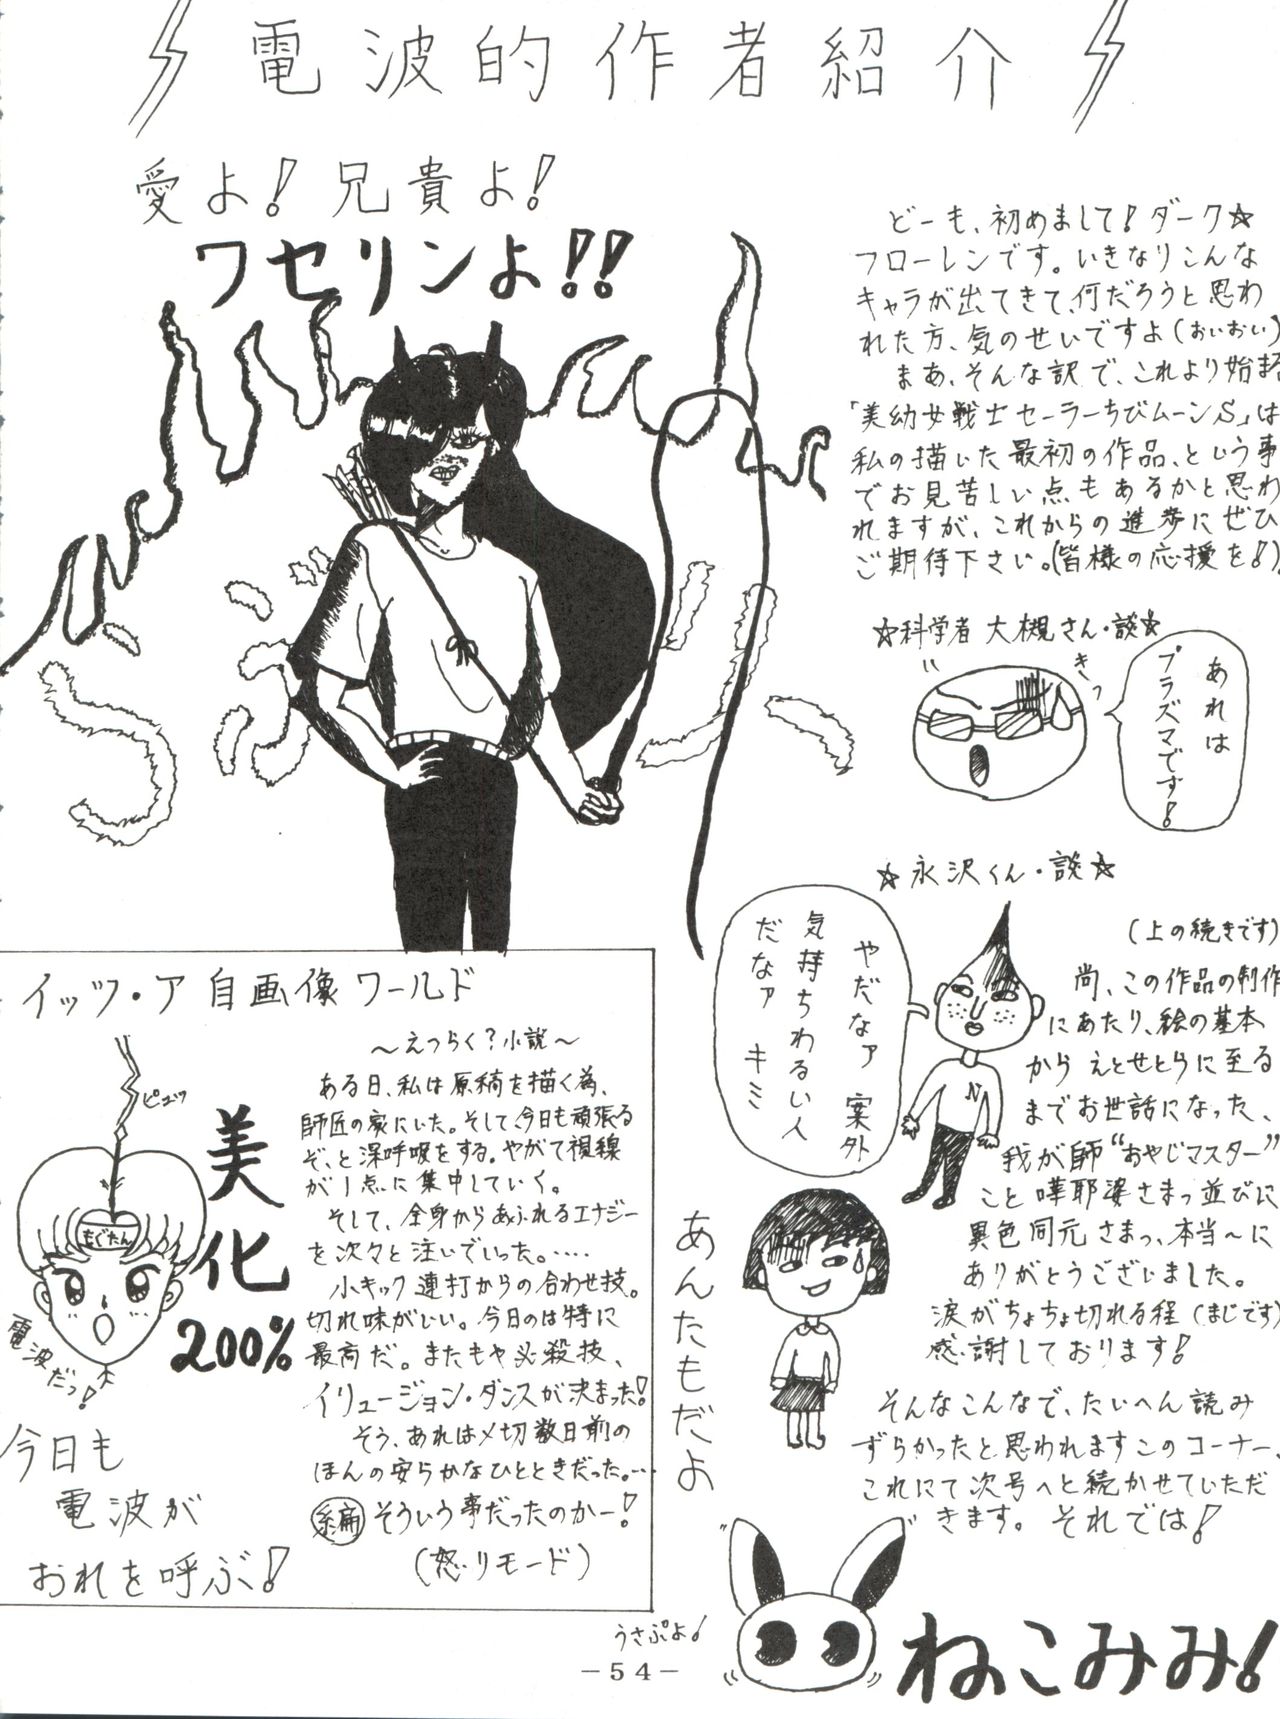 電波的作者紹介
愛よ！兄貴よ！
ワセリンよ!!
どーも、初めまして！ダーク☆
フローレンです。いきなりこんな
キャラが出てきて、何だろうと思わ
れた方、気のせいですよ(おいおい)
まあ、そんな訳で、これより始まる
「美幼女戦士セーラーちびムーンS」は
私の描いた最初の作品、という事
でお見苦しい点もあるかと思わ
れますが、これからの進歩にぜひ
ご期待下さい。(皆様の応援を！)。
☆科学者 大槻さん・談☆
きっ
あれは
プラズマです！
☆永沢くん・談☆
やだなァ 案外
気持ちわるい人
だなァ キミ
N
(上の続きです)
尚、この作品の制作
にあたり、絵の基本
から えとせとらに至る
までお世話になった、
我が師“おやじマスター”
こと 嘩耶婆さまっ並びに
異色同元さまっ、本当〜に
ありがとうございました。
涙がちょちょ切れる程(まじです)
感謝しております！
あんたもだよ
そんなこんなで、たいへん読み
ずらかったと思われますこのコーナー、
これにて次号へと続かせていただ
きます。それでは！
イッツ・ア 自画像ワールド
ピュッ
もぐたん
電波だっ！
美化
200%
今日も
電波が
おれを呼ぶ！
〜えっらく？小説〜
ある日、私は原稿を描く為、
師匠の家にいた。そして、今日も頑張る
ぞ、と深呼吸をする。やがて視線
が1点に集中していく。
そして、全身からあふれるエナジー
を次々と注いでいった。‥‥
小キック連打からの合わせ技。
切れ味がいい。今日のは特に
最高だ。またもや必殺技、
イリュージョン・ダンスが決まった！
そう、あれは〆切数日前の
ほんの安らかなひとときだった。…
編 そういう事だったのかー！
(怒りモード)
うさぷよ！
ねこみみ！
－54－